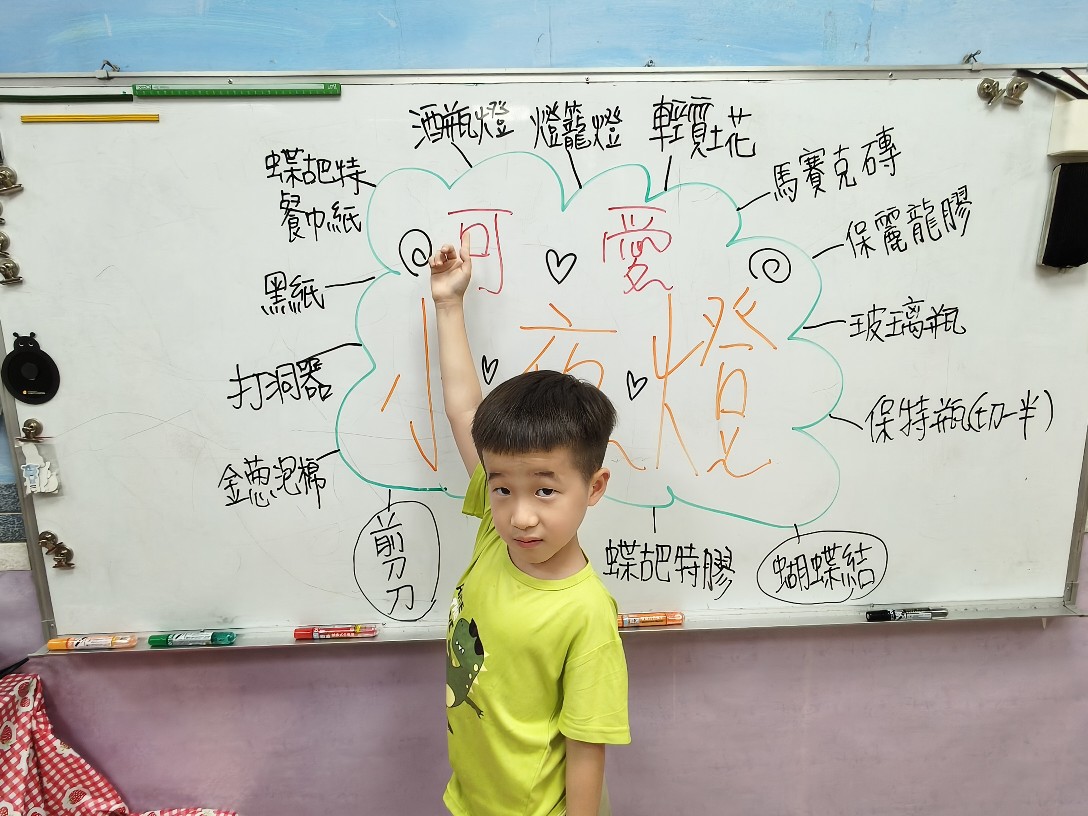 酒瓶燈
燈籠燈
輕質土花
馬賽克磚
保麗龍膠
玻璃瓶
保特瓶(切一半)
蝴蝶結
蝶古巴特膠
剪刀
金蔥泡棉
打洞器
黑紙
蝶古巴特
餐巾紙
可愛
小夜燈